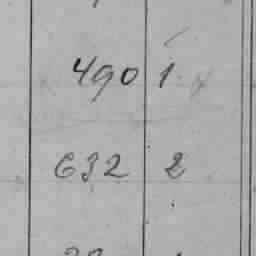 490 1
632 2